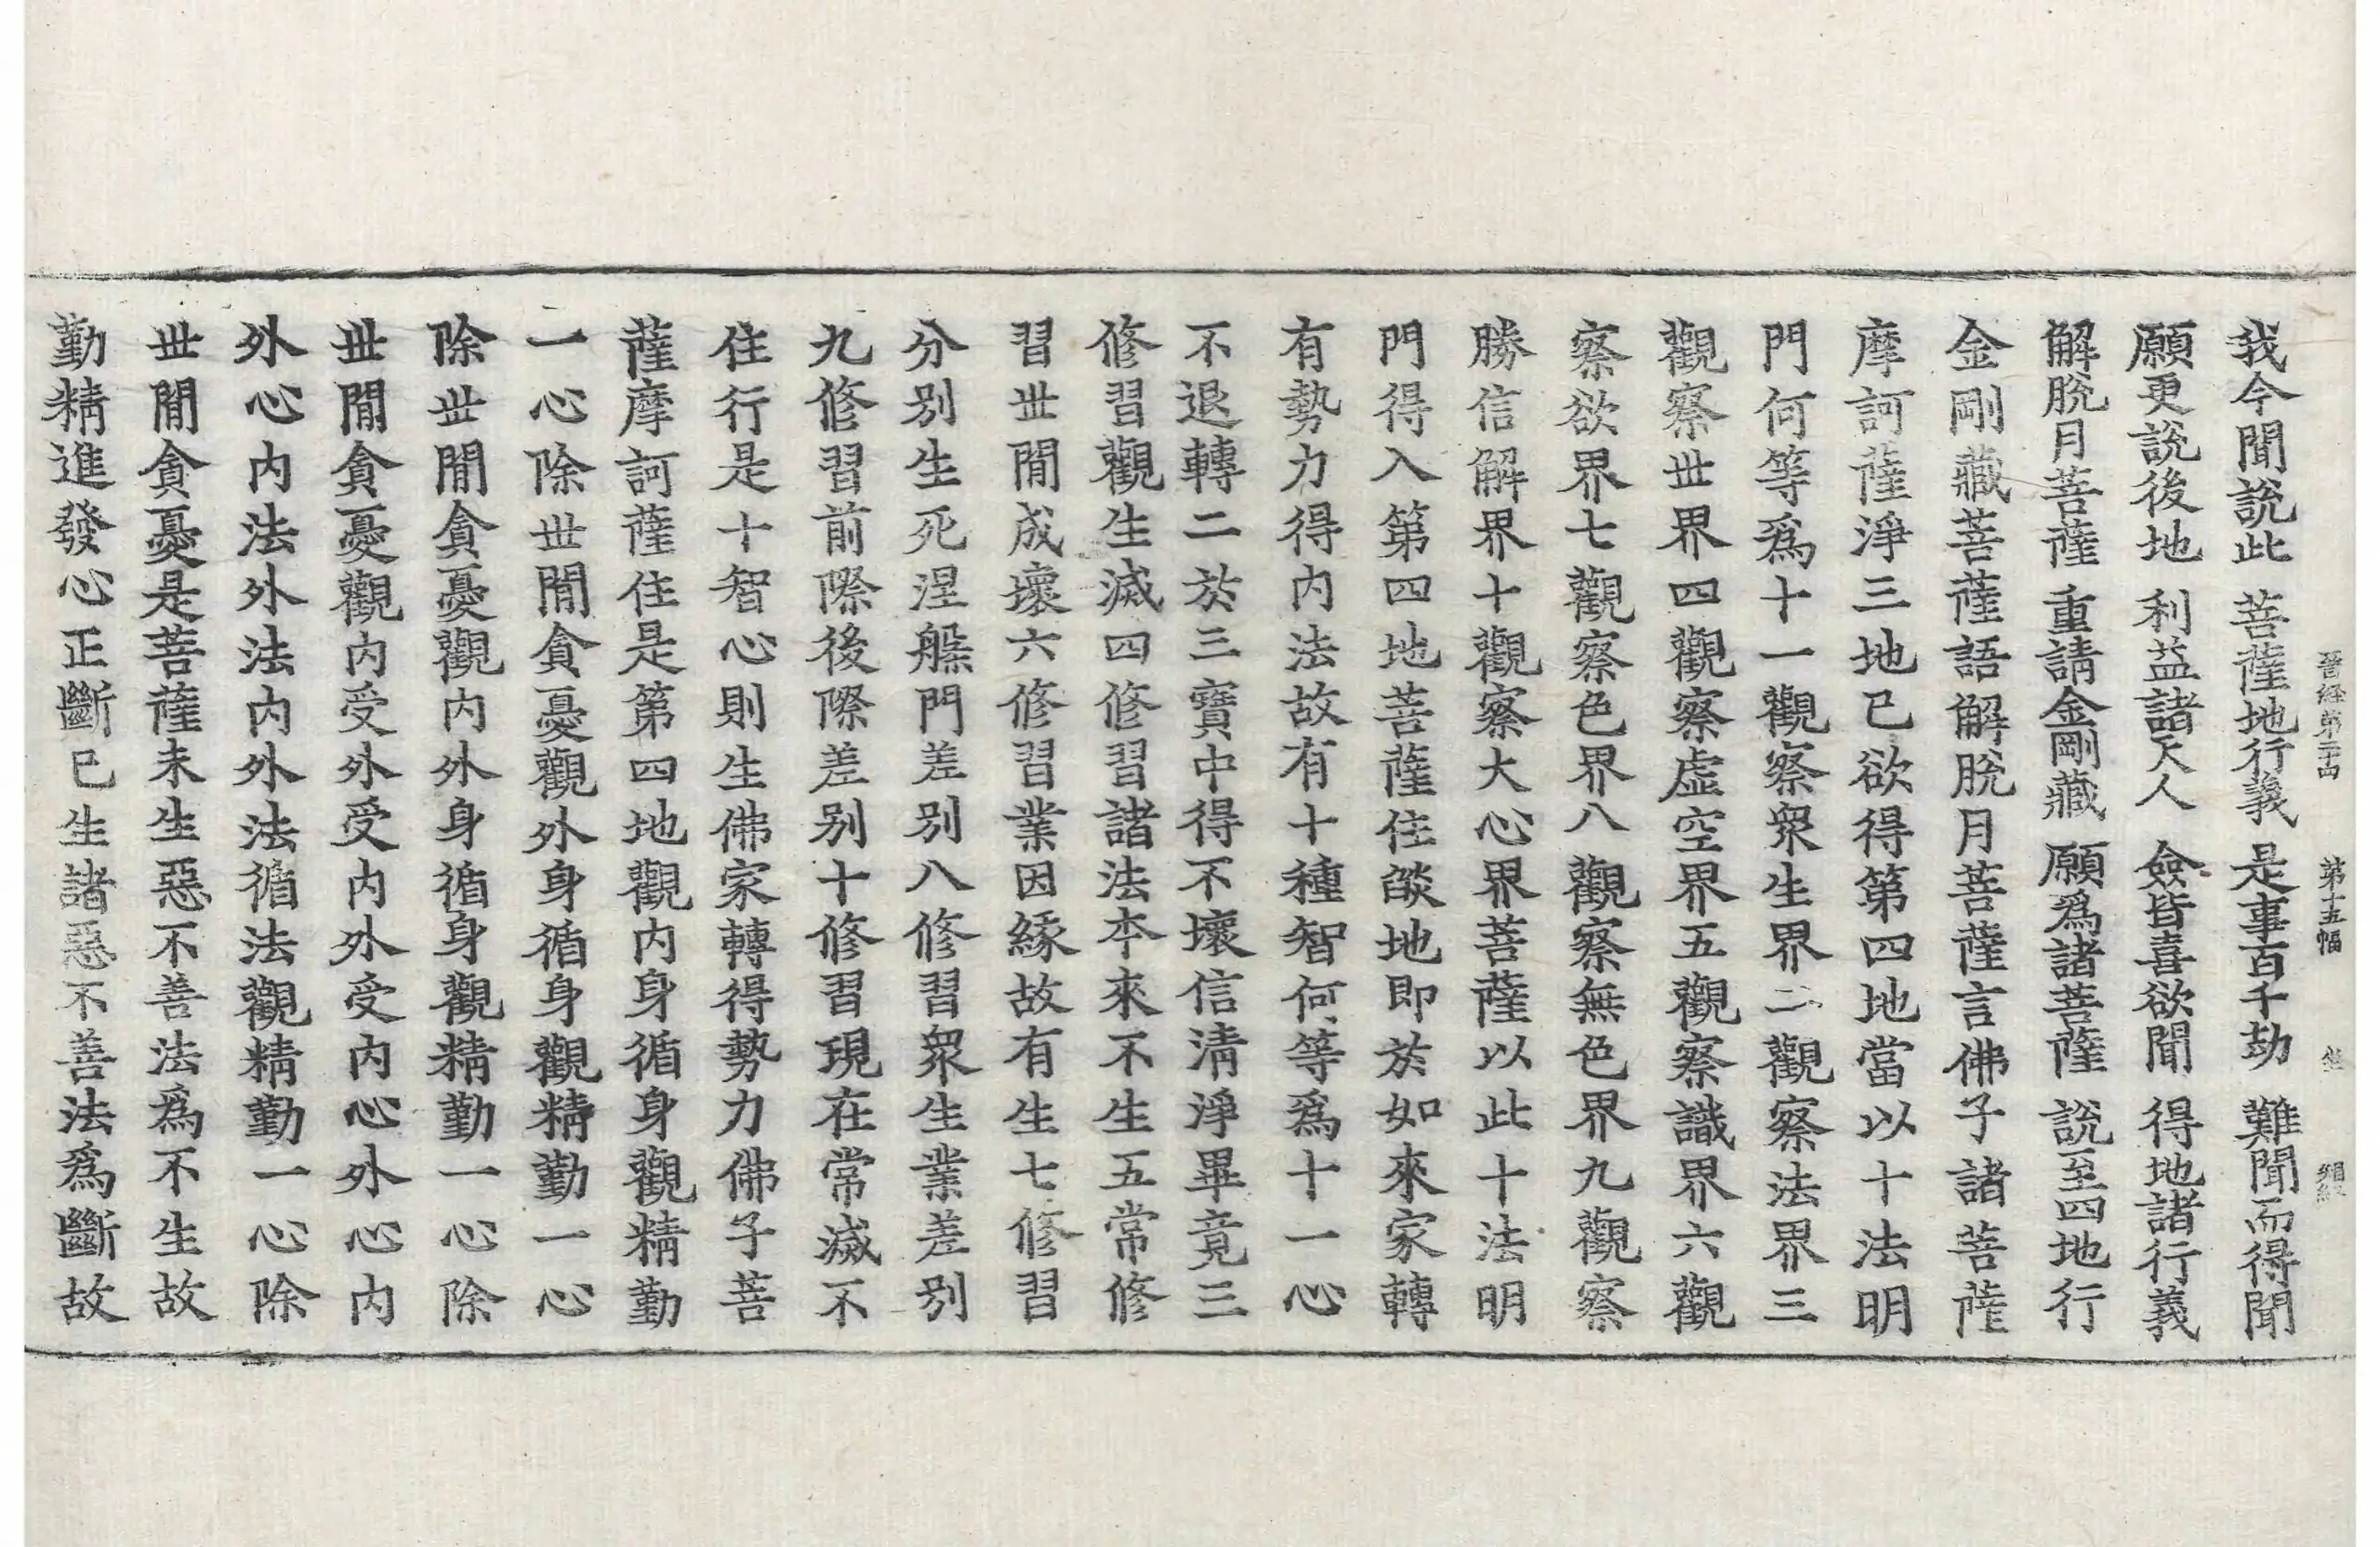 晉経第二十四 第十五幅
我今聞説此 菩薩地行義 是事百千劫 難聞而得聞
願更説後地 利益諸天人 僉皆喜欲聞 得地諸行義
解脱月菩薩 重請金剛藏 願爲諸菩薩 説至四地行
金剛藏菩薩語解脱月菩薩言佛子諸菩薩
摩訶薩淨三地已欲得第四地當以十法明
門何等爲十一觀察衆生界二觀察法界三
觀察世界四觀察虚空界五觀察識界六觀
察欲界七觀察色界八觀察無色界九觀察
勝信解界十觀察大心界菩薩以此十法明
門得入第四地菩薩住燄地即於如來家轉
有勢力得内法故有十種智何等爲十一心
不退轉二於三寶中得不壞信清淨畢竟三
修習觀生滅四修習諸法本來不生五常修
習世間成壞六修習業因緣故有生七修習
分别生死涅槃門差别八修習衆生業差别
九修習前際後際差别十修習現在常滅不
住行是十智心則生佛家轉得勢力佛子菩
薩摩訶薩住是第四地觀内身循身觀精勤
一心除世間貪憂觀外身循身觀精勤一心
除世間貪憂觀内外身循身觀精勤一心除
世間貪憂觀内受外受内外受内心外心内
外心内法外法内外法循法觀精勤一心除
世間貪憂是菩薩未生惡不善法爲不生故
勤精進發心正斷已生諸惡不善法爲斷故